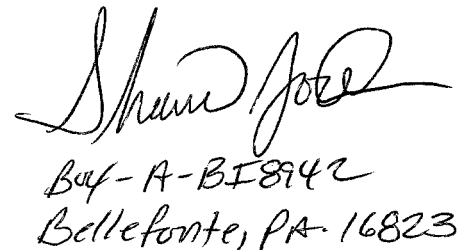 Shawn
Box-A-BI8942
Bellefonte, PA. 16823